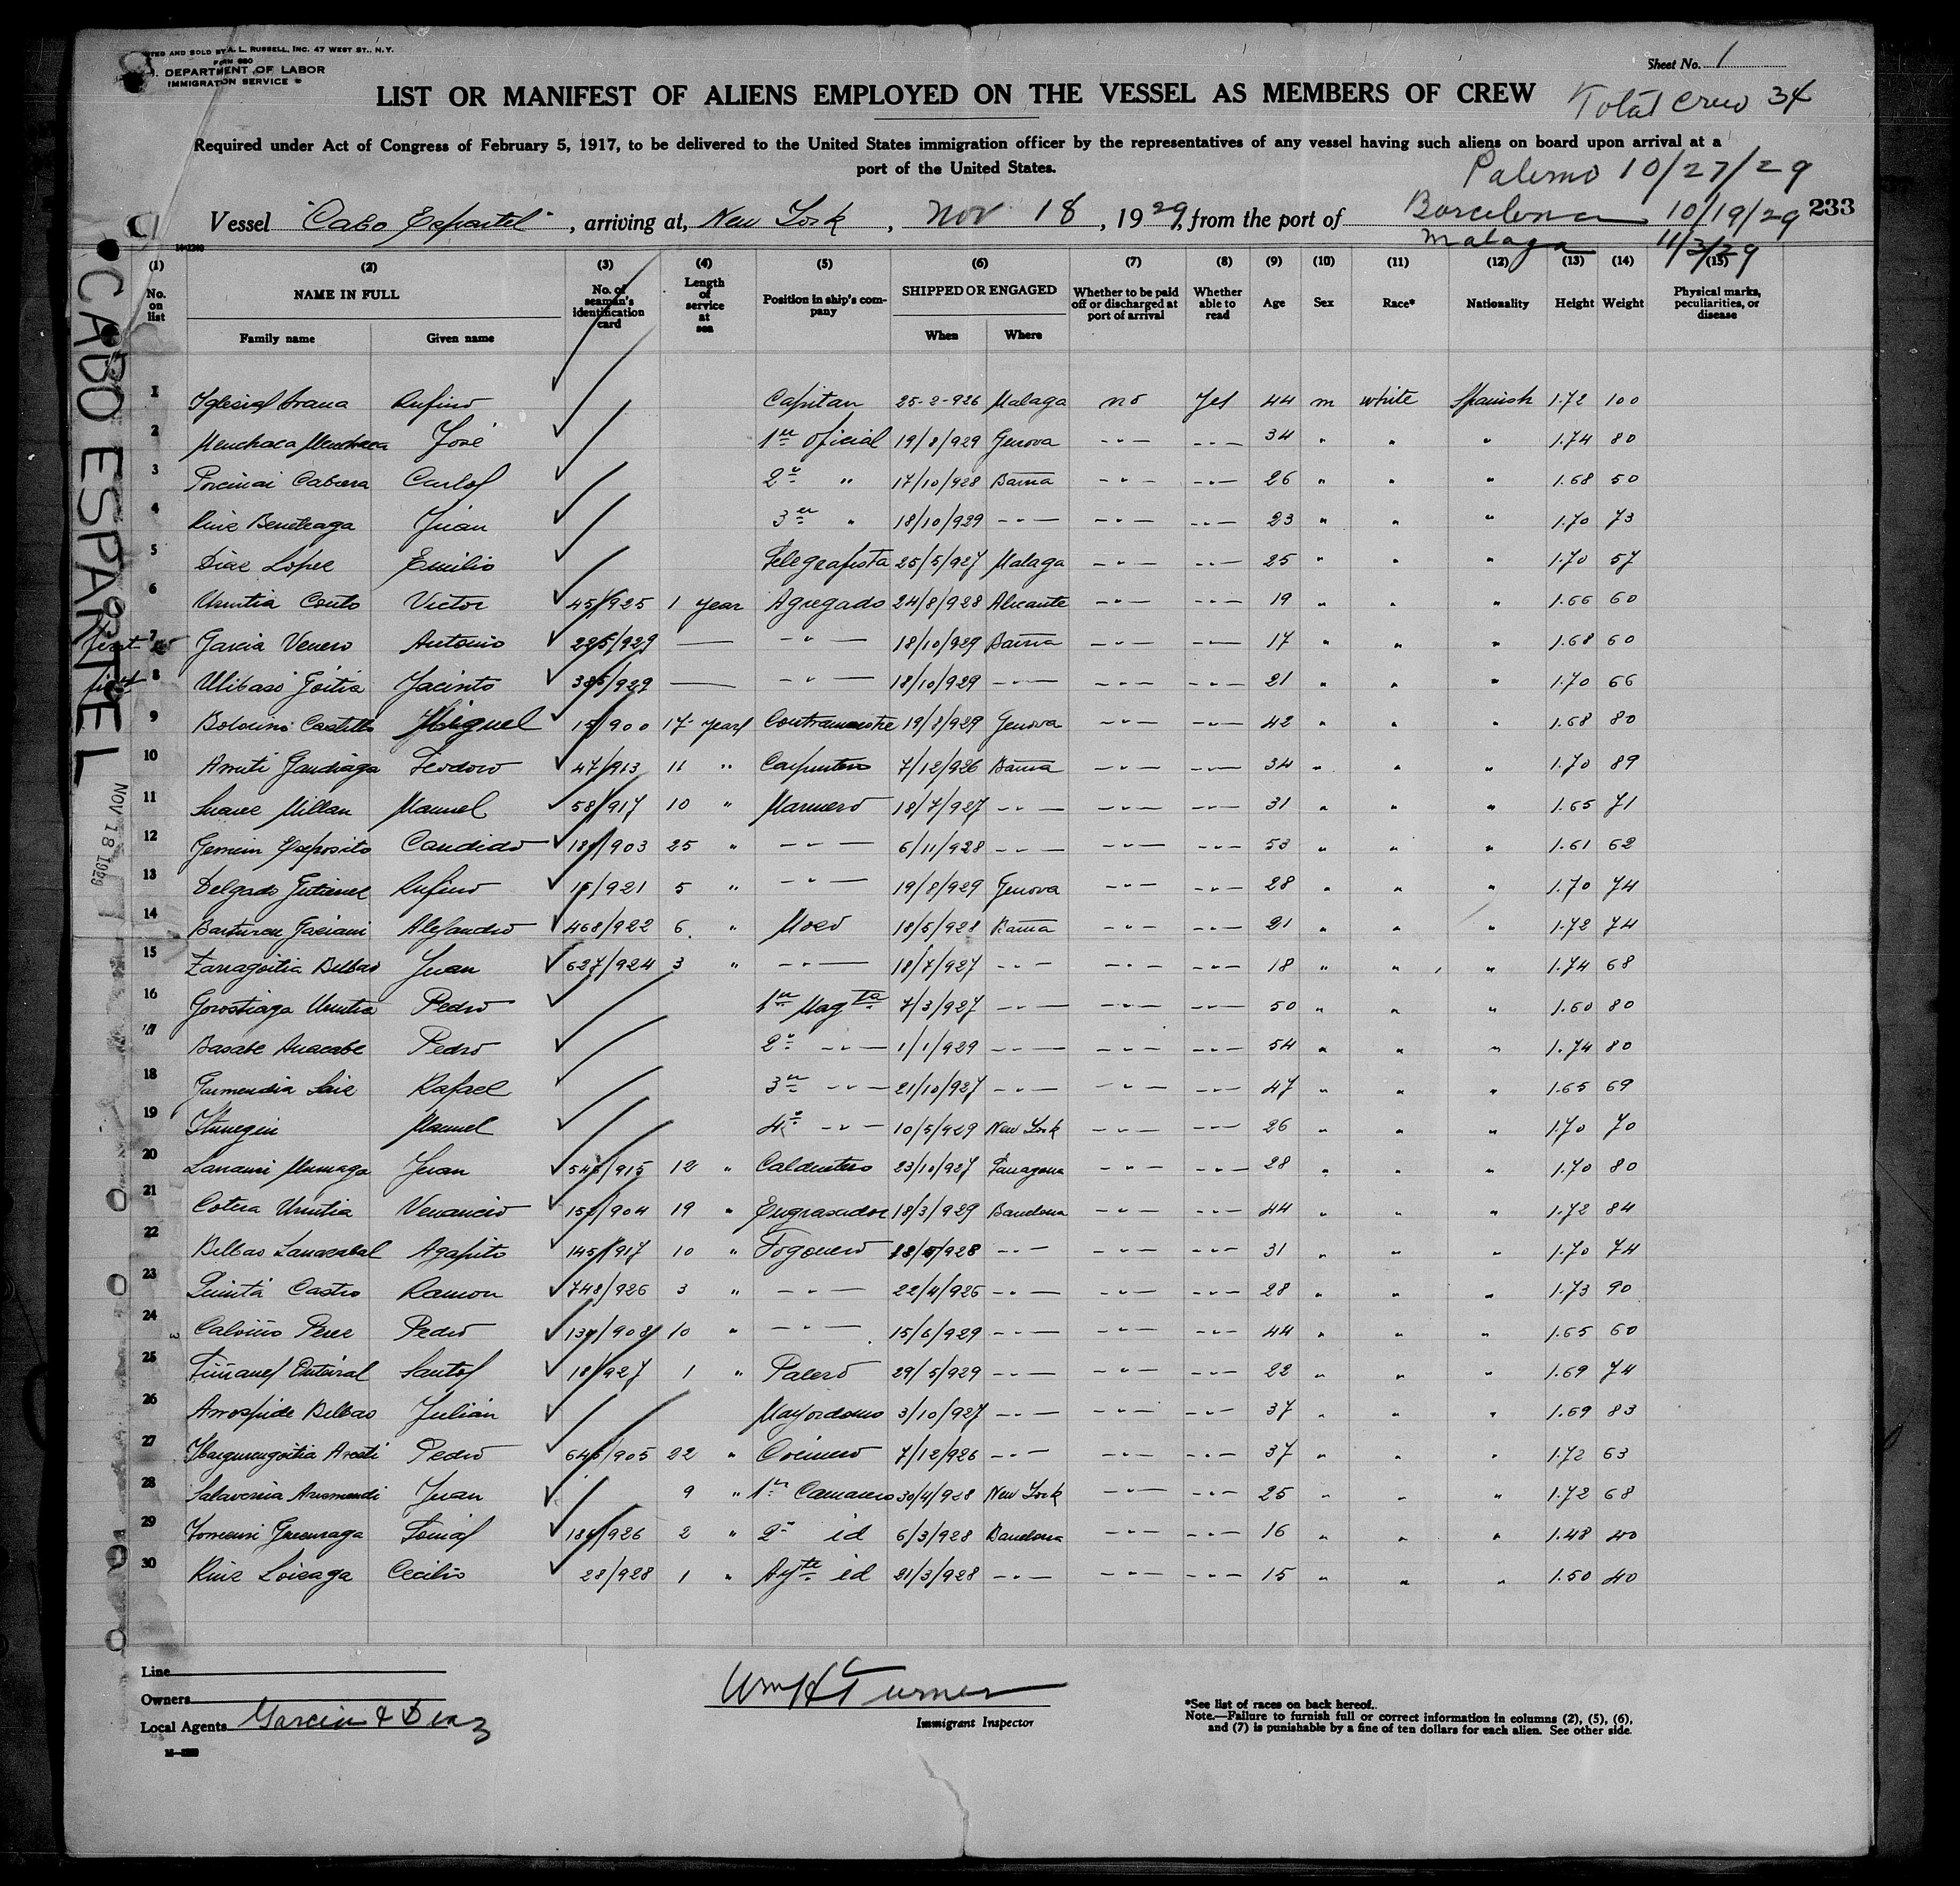 PRINTED AND SOLD BY A. L. RUSSELL, INC. 47 WEST ST., N.Y.
FORM 680
DEPARTMENT OF LABOR
IMMIGRATION SERVICE
Sheet No. 1
LIST OR MANIFEST OF ALIENS EMPLOYED ON THE VESSEL AS MEMBERS OF CREW
Total Crew 34
Required under Act of Congress of February 5, 1917, to be delivered to the United States immigration officer by the representatives of any vessel having such aliens on board upon arrival at a
port of the United States.
Palermo 10/27/29
Vessel "Cabo Espartel", arriving at, New York, Nov 18, 1929, from the port of Barcelona 10/19/29 233
Malaga 11/3/29
(1) (2) (3) (4) (5) (6) (7) (8) (9) (10) (11) (12) (13) (14) (15)
No. on list NAME IN FULL No. of seaman's identification card Length of service at sea Position in ship's company SHIPPED OR ENGAGED Whether to be paid off or discharged at port of arrival Whether able to read Age Sex Race* Nationality Height Weight Physical marks, peculiarities, or disease
Family name Given name When Where
1 Iglesias Arana Rufino Capitan 25-2-926 Malaga no Yes 44 m white Spanish 1.72 100
2 Menchaca Menchaca José 1er Oficial 19/8/929 Genova -"- -"- 34 " " " 1.74 80
3 Cabrera Carlos 2o " 17/10/928 Barna -"- -"- 26 " " " 1.68 50
4 Ruiz Juan 3er " 18/10/929 -"- -"- -"- 23 " " " 1.70 73
5 Diaz Lopez Emilio Telegrafista 25/5/927 Malaga -"- -"- 25 " " " 1.70 57
6 Urrutia Couto Victor 45/925 1 year Agregado 24/8/928 Alicante -"- -"- 19 " " " 1.66 60
first 7 Garcia Venero Antonio 225/929 — -"- 18/10/929 Barna -"- -"- 17 " " " 1.68 60
first 8 Ulibaso Goitia Jacinto 385/929 — -"- 18/10/929 -"- -"- -"- 21 " " " 1.70 66
9 Castillo Miguel 15/900 17 years Contramaestre 19/8/929 Genova -"- -"- 42 " " " 1.68 80
10 Arruti Gandiaga Teodoro 47/913 11 " Carpintero 7/12/926 Barna -"- -"- 34 " " " 1.70 89
11 Suarez Millan Manuel 58/917 10 " Marinero 18/7/927 -"- -"- -"- 31 " " " 1.65 71
12 Exposito Candido 181/903 25 " -"- 6/11/928 -"- -"- -"- 53 " " " 1.61 62
13 Delgado Gutierrez Rufino 15/921 5 " -"- 19/8/929 Genova -"- -"- 28 " " " 1.70 74
14 Barturen Alejandro 468/922 6 " Mozo 18/5/928 Barna -"- -"- 21 " " " 1.72 74
15 Zarragoitia Bilbao Juan 627/924 3 " -"- 18/7/927 -"- -"- -"- 18 " " " 1.74 68
16 Gorostiaga Urrutia Pedro 1er Maqta 7/3/927 -"- -"- -"- 50 " " " 1.60 80
17 Basabe Anacabe Pedro 2o -"- 1/1/929 -"- -"- -"- 54 " " " 1.74 80
18 Garmendia Rafael 3er -"- 21/10/927 -"- -"- -"- 47 " " " 1.65 69
19 Manuel 4o -"- 10/5/929 New York -"- -"- 26 " " " 1.70 70
20 Juan 545/915 12 " Calderetero 23/10/927 Tarragona -"- -"- 28 " " " 1.70 80
21 Cotera Urrutia Venancio 157/904 19 " Engrasador 18/3/929 Barcelona -"- -"- 44 " " " 1.72 84
22 Bilbao Agapito 145/917 10 " Fogonero 18/5/928 -"- -"- -"- 31 " " " 1.70 74
23 Castro Ramon 748/926 3 " -"- 22/4/926 -"- -"- -"- 28 " " " 1.73 90
24 Calviño Perez Pedro 137/908 10 " -"- 15/6/929 -"- -"- -"- 44 " " " 1.65 60
25 Santos 18/927 1 " Palero 29/5/929 -"- -"- -"- 22 " " " 1.69 74
26 Arrospide Bilbao Julian Mayordomo 3/10/927 -"- -"- -"- 37 " " " 1.69 83
27 Ibarguengoitia Pedro 645/905 22 " Cocinero 7/12/926 -"- -"- -"- 37 " " " 1.72 63
28 Salaverria Arismendi Juan 9 " 1er Camarero 30/4/928 New York -"- -"- 25 " " " 1.72 68
29 Tomás 184/926 2 " 2o id 6/3/928 Barcelona -"- -"- 16 " " " 1.48 40
30 Ruiz Loizaga Cecilio 28/928 1 " Ayte id 21/3/928 -"- -"- -"- 15 " " " 1.50 40
CABO ESPARTEL
NOV 18 1929
Line
Owners
Local Agents Garcia & Diaz
Wm H Turner
Immigrant Inspector
*See list of races on back hereof.
Note.—Failure to furnish full or correct information in columns (2), (5), (6),
and (7) is punishable by a fine of ten dollars for each alien. See other side.